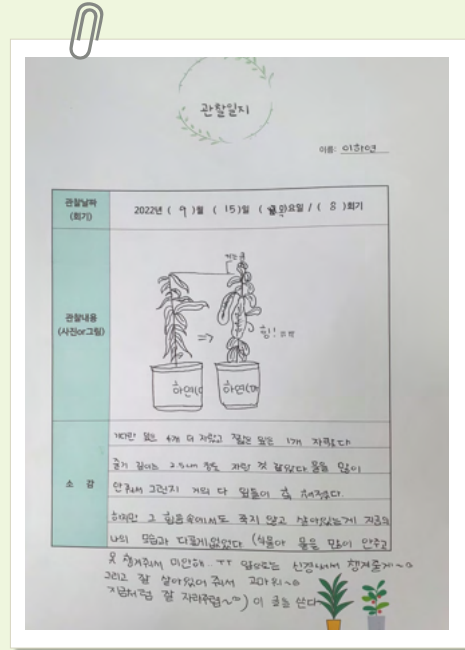 관찰일지
이름: 이하연
관찰날짜
(회기)
2022년 ( 9 )월 ( 15 )일 ( 목 )요일 / ( 8 )회기
관찰내용
(사진or그림)
=>
힝! ㅠㅠ
하연(
하연(
소 감
커다란 잎은 4개 더 자랐고 작은 잎은 1개 자랐다
줄기 길이는 정도 자란 것 같았다 물을 많이
안줘서 그런지 거의 다 잎들이 해졌다.
하지만 그 힘듦속에서도 죽지 않고 살아있는게 지금의
나의 모습과 다를게없었다 (식물아 물을 많이 안주고
못 챙겨줘서 미안해.. ㅜㅜ 앞으로는 신경써서 챙겨줄게~
그리고 잘 살아있어 줘서 고마워~
지금처럼 잘 자라주렴~) 이 글을 쓴다